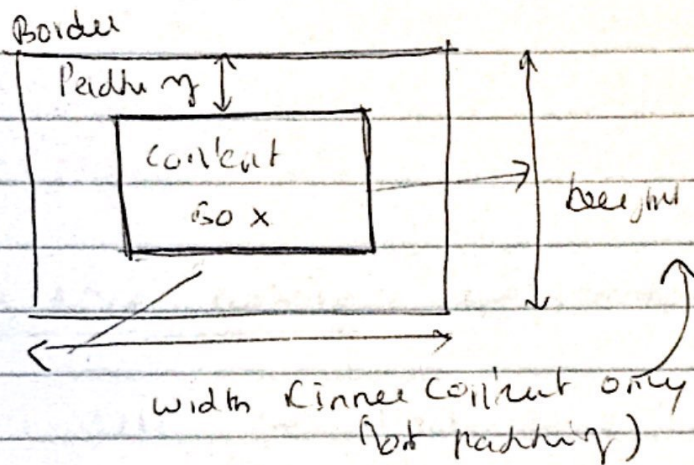 Border
Padding
Content
Box
height
width (inner content only
not padding)